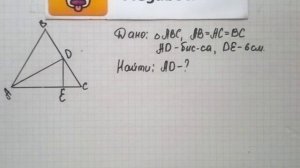 Дано: △ABC, AB=AC=BC
AD-бис-са, DE-6см.
Найти: AD-?
B
D
A
E
C